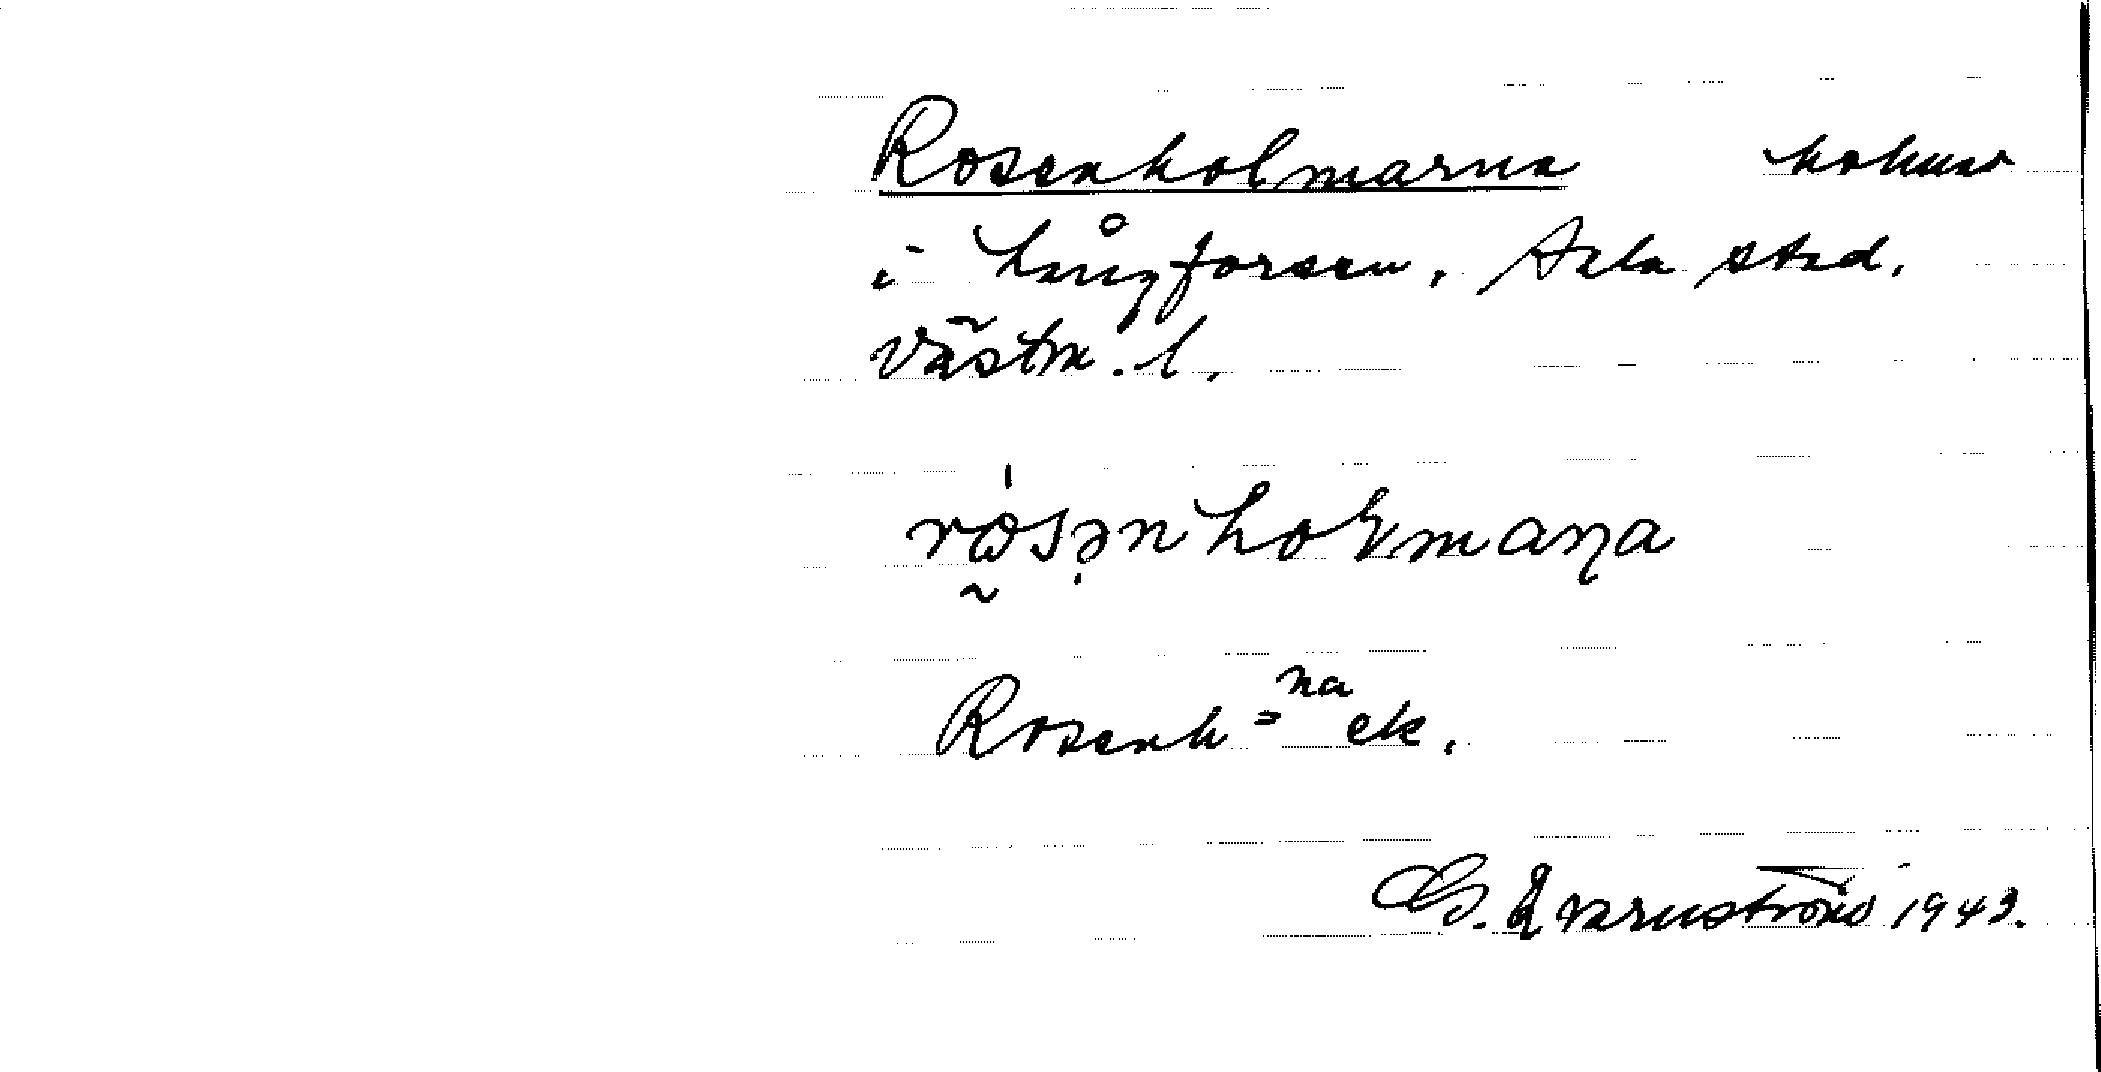 Rosenholmarna holmar
i Långforsen. Sala stad.
Västm. l.
rώ̣sənhoɫmaɳa
Rosenh=na ek.
G. Qvarnström 1943.